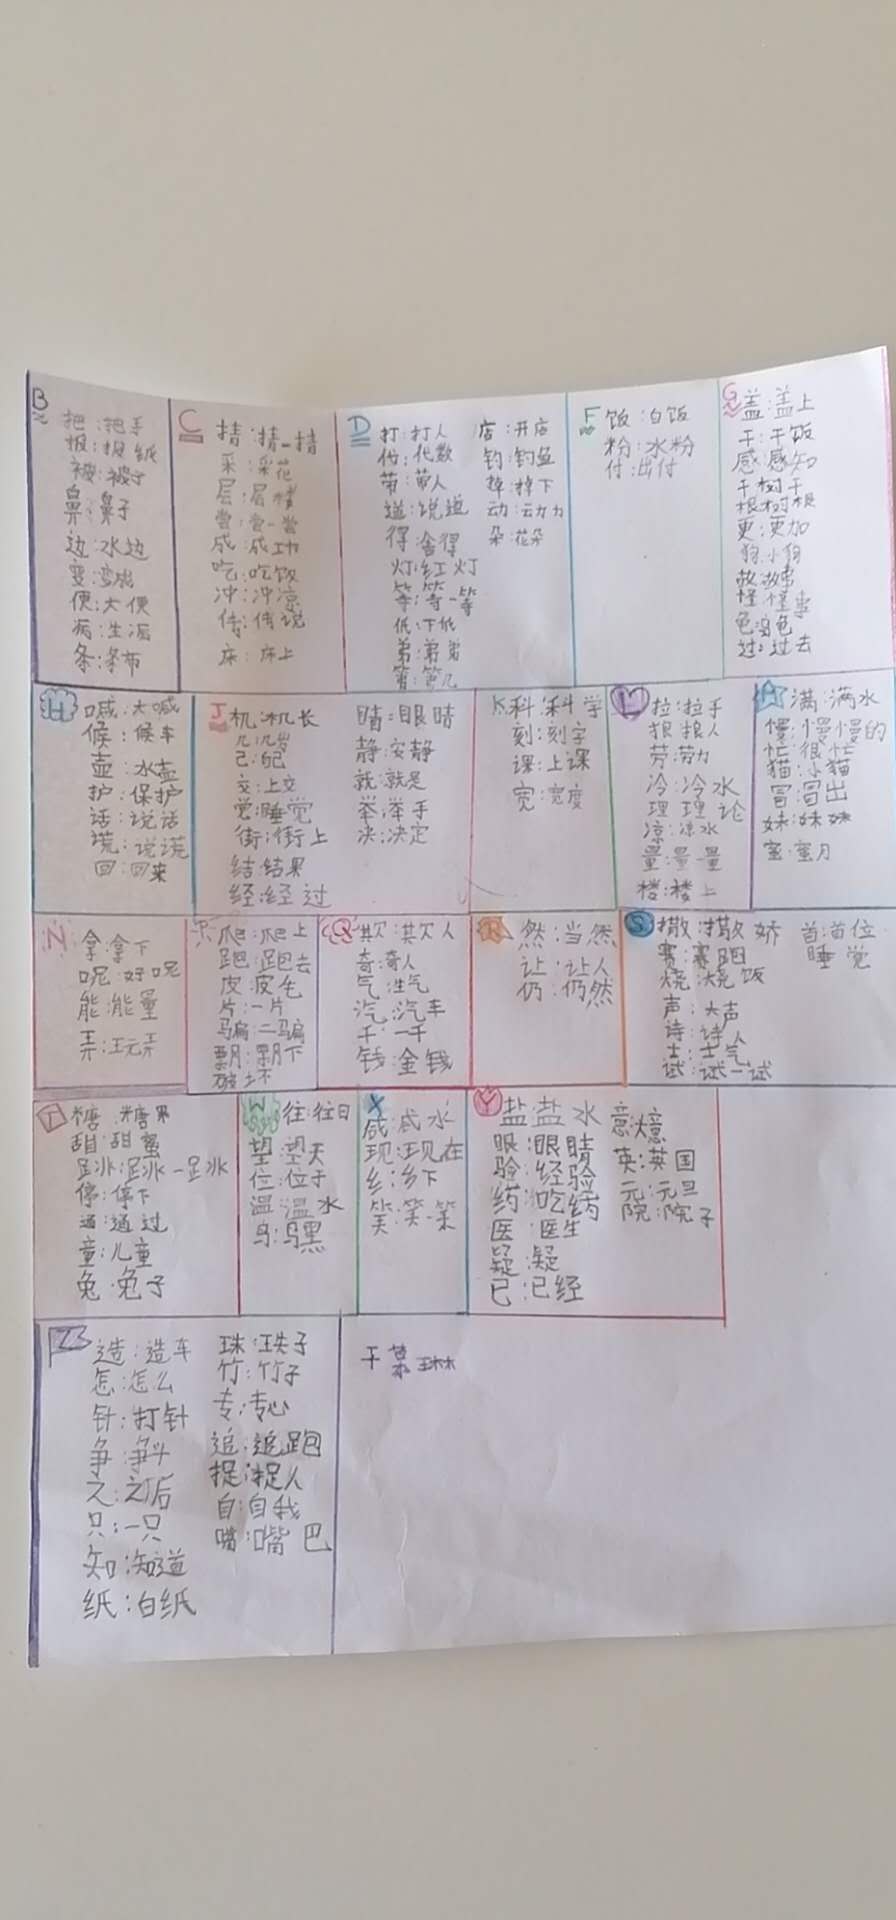 B
把:把手
报:报纸
被:被子
鼻:鼻子
边:水边
变:变成
便:大便
病:生病
条:条布
C
猜:猜一猜
采:采花
层:层楼
尝:尝一尝
成:成功
吃:吃饭
冲:冲凉
传:传说
床:床上
D
打:打人
代:代数
带:带人
道:说道
得:舍得
灯:红灯
等:等一等
低:下低
弟:弟弟
第:第几
店:开店
钓:钓鱼
掉:掉下
动:动力
朵:花朵
F
饭:白饭
粉:水粉
付:出付
G
盖:盖上
干:干饭
感:感知
干:树干
根:树根
更:更加
狗:小狗
故:故事
怪:怪事
过:过去
H
喊:大喊
候:候车
壶:水壶
护:保护
话:说话
谎:说谎
回:回来
J
机:机长
几:几岁
己:自己
交:上交
觉:睡觉
街:街上
结:结果
经:经过
睛:眼睛
静:安静
就:就是
举:举手
决:决定
K
科:科学
刻:刻字
课:上课
宽:宽度
L
拉:拉手
狼:狼人
劳:劳力
冷:冷水
理:理论
凉:凉水
量:量一量
楼:楼上
满:满水
慢:慢慢的
忙:很忙
猫:小猫
冒:冒出
妹:妹妹
蜜:蜜月
N
拿:拿下
呢:好呢
能:能量
弄:玩弄
P
爬:爬上
跑:跑去
皮:皮毛
片:一片
骗:一骗
Q
欺:欺人
奇:奇人
气:生气
汽:汽车
千:一千
钱:金钱
R
然:当然
让:让人
仍:仍然
S
撒:撒娇
赛:赛跑
烧:烧饭
声:大声
诗:诗人
士:士气
试:试一试
首:首位
睡觉
T
糖:糖果
甜:甜蜜
停:停下
通:通过
童:儿童
兔:兔子
W
往:往日
望:望天
位:位于
温:温水
乌:乌黑
X
咸:咸水
现:现在
乡:乡下
笑:笑一笑
Y
盐:盐水
眼:眼睛
验:经验
药:吃药
医:医生
疑:疑
已:已经
意:大意
英:英国
元:元旦
院:院子
Z
造:造车
怎:怎么
针:打针
争:争斗
之:之后
只:一只
知:知道
纸:白纸
珠:珠子
竹:竹子
专:专心
追:追跑
捉:捉人
自:自我
嘴:嘴巴